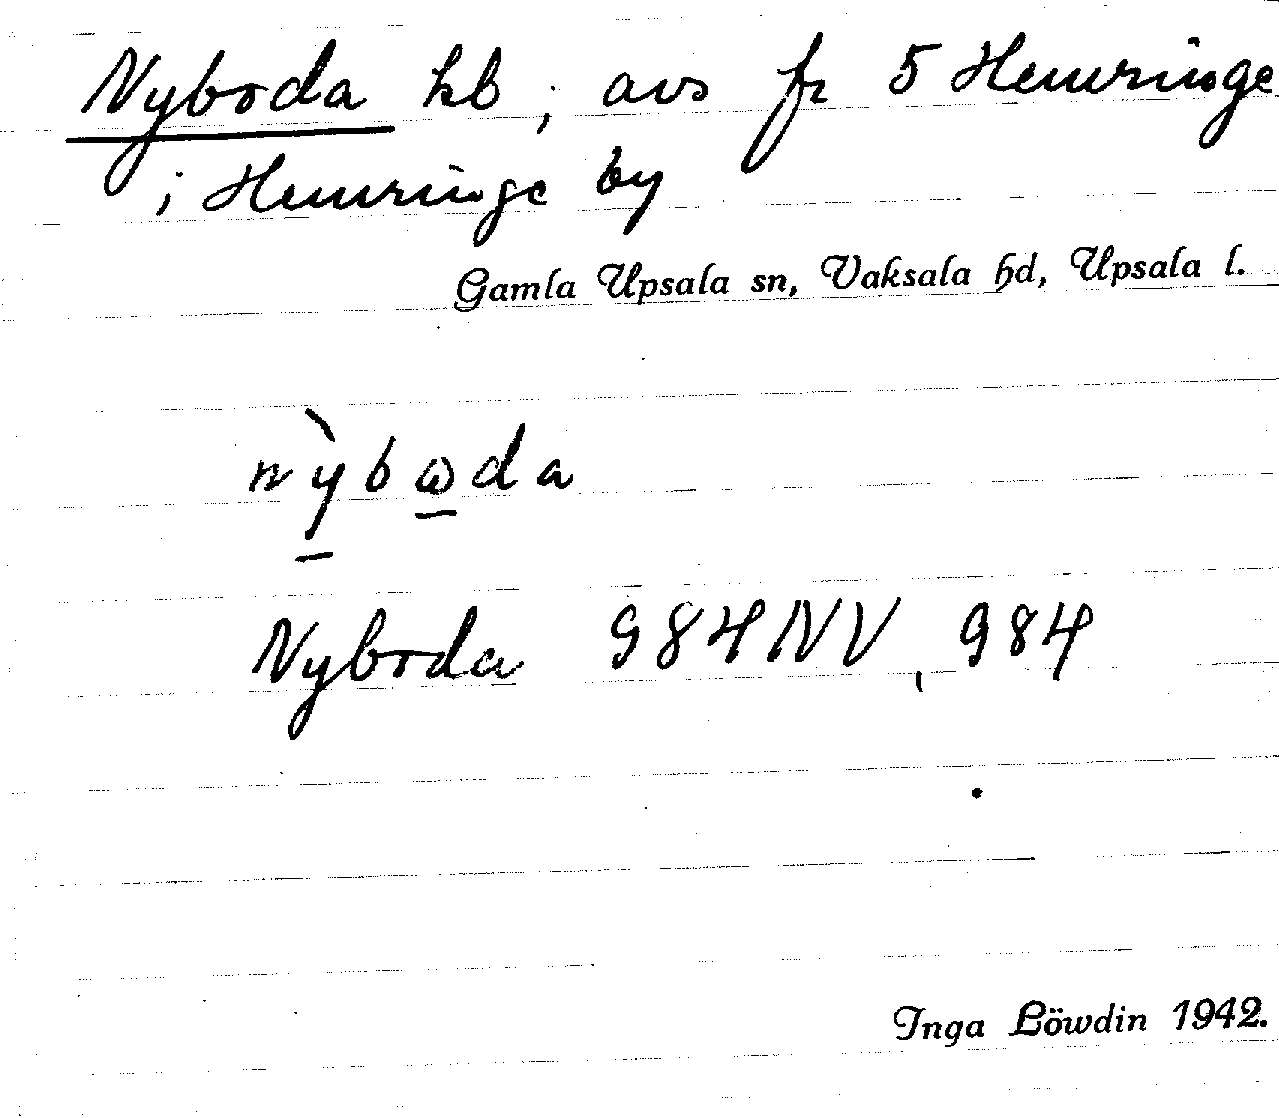 Nyboda hb, avs fr 5 Hemringe
i Hemringe by
Gamla Upsala sn, Vaksala hd, Upsala l.
nỳ̠bω̠da
Nyboda 984NV, 984
Inga Löwdin 1942.